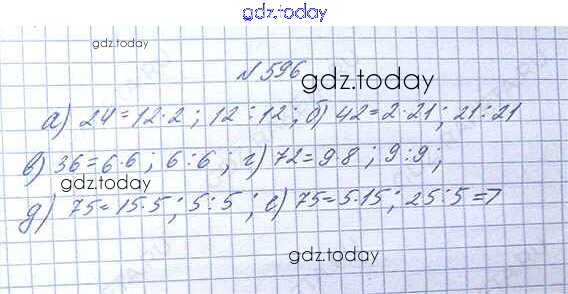 gdz.today
gdz.today
№596
gdz.today
а) 24=12·2; 12:12; б) 42=2·21; 21:21
в) 36=6·6; 6:6; г) 72=9·8; 9:9;
gdz.today
д) 75=15·5; 5:5; е) 75=5·15; 25:5=7
gdz.today